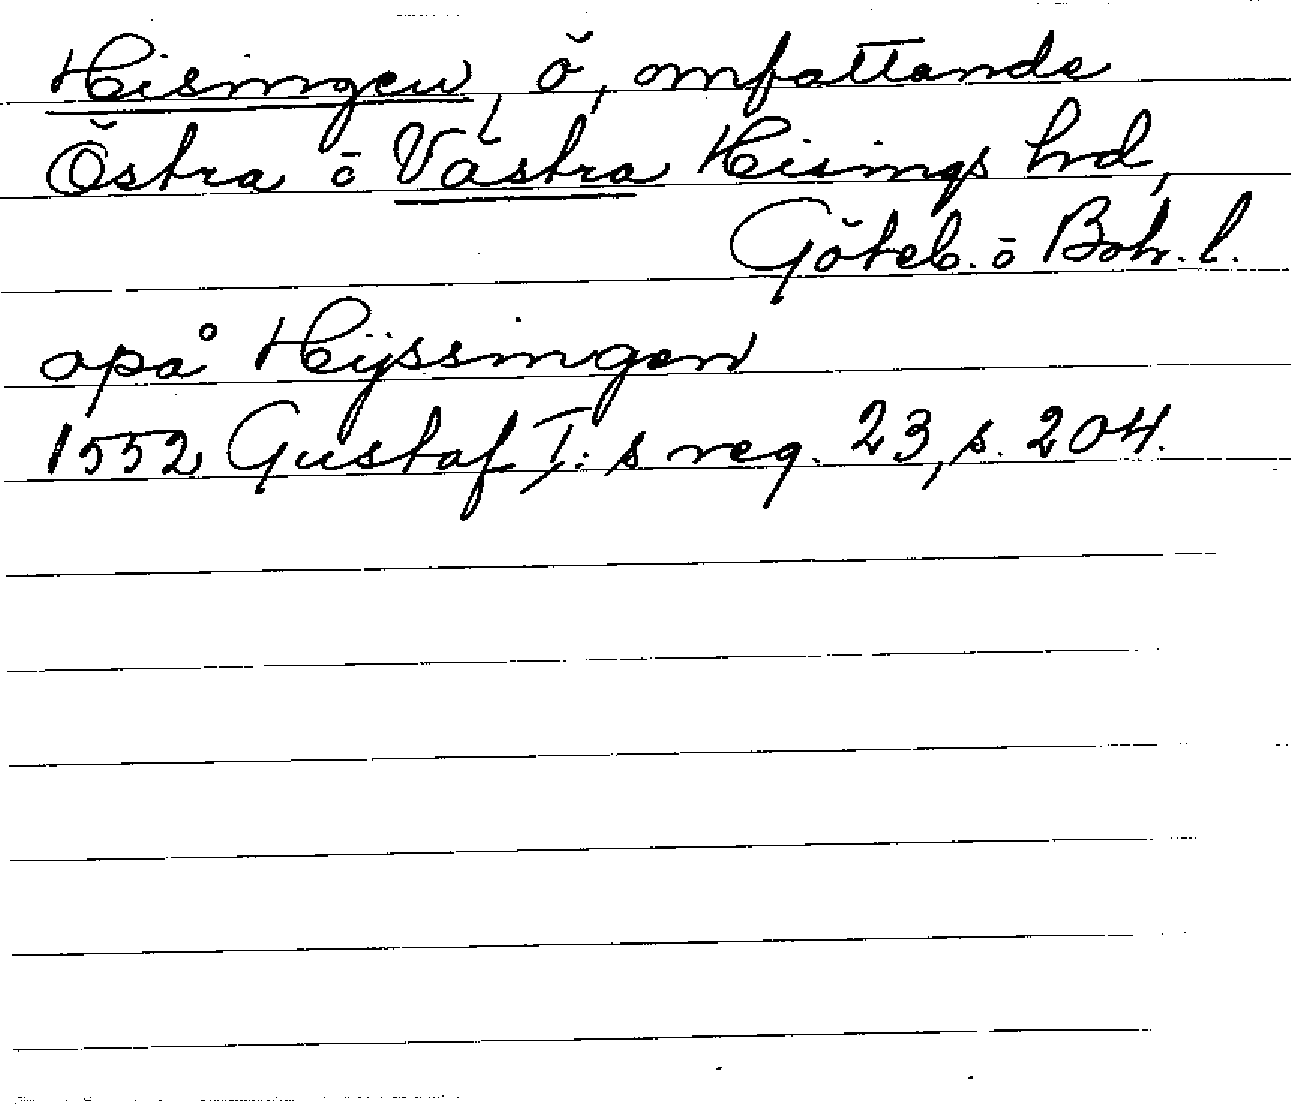 Hisingen, ö, omfattande
Östra o Västra Hisings hd,
Göteb. o Boh. l.
opå Hijssingen
1552 Gustaf I:s reg. 23, s. 204.